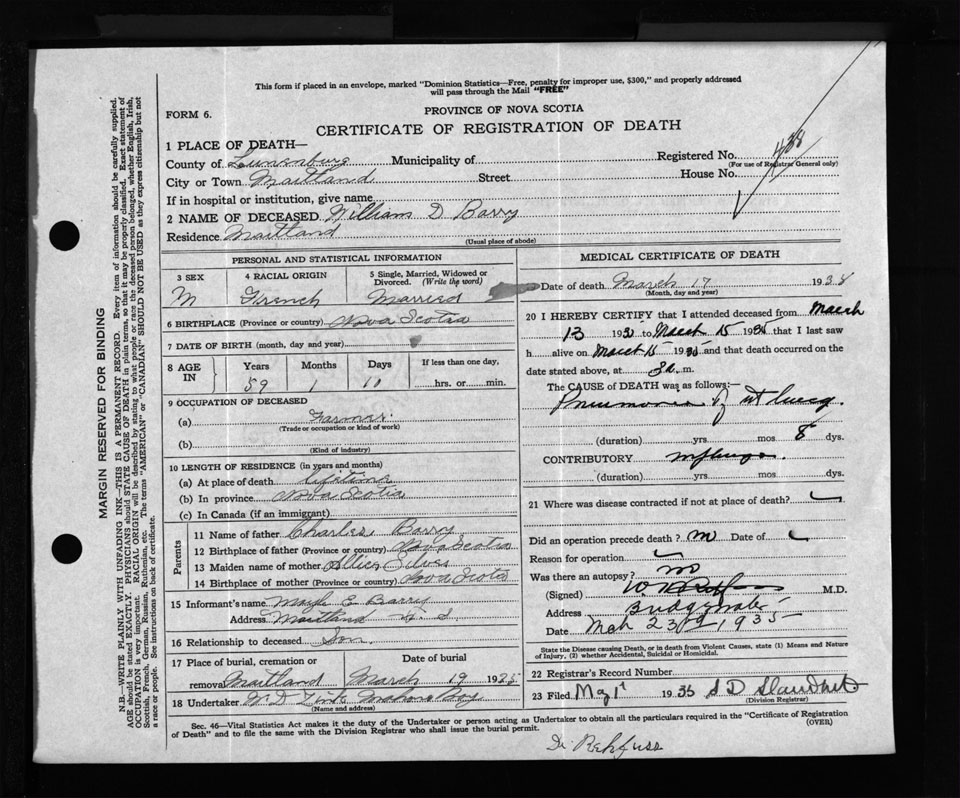 This form if placed in an envelope, marked "Dominion Statistics—Free, penalty for improper use, $300," and properly addressed
will pass through the Mail "FREE"
FORM 6.
PROVINCE OF NOVA SCOTIA
CERTIFICATE OF REGISTRATION OF DEATH
1 PLACE OF DEATH—
County of Lunenburg Municipality of Registered No. 438
(For use of Registrar General only)
City or Town Maitland Street House No.
If in hospital or institution, give name
2 NAME OF DECEASED William D Barry
Residence Maitland
(Usual place of abode)
PERSONAL AND STATISTICAL INFORMATION
3 SEX 4 RACIAL ORIGIN 5 Single, Married, Widowed or Divorced. (Write the word)
M French Married
6 BIRTHPLACE (Province or country) Nova Scotia
7 DATE OF BIRTH (month, day and year)
8 AGE IN Years Months Days If less than one day,
59 1 11 hrs. or min.
9 OCCUPATION OF DECEASED
(a) Farmer
(Trade or occupation or kind of work)
(b)
(Kind of industry)
10 LENGTH OF RESIDENCE (in years and months)
(a) At place of death Lifetime
(b) In province Nova Scotia
(c) In Canada (if an immigrant)
Parents
11 Name of father Charles Barry
12 Birthplace of father (Province or country) Nova Scotia
13 Maiden name of mother
14 Birthplace of mother (Province or country) Nova Scotia
15 Informant's name E Barry
Address Maitland
16 Relationship to deceased Son
17 Place of burial, cremation or Date of burial
removal Maitland March 19 1935
18 Undertaker Zink Mahone Bay
(Name and address)
MEDICAL CERTIFICATE OF DEATH
Date of death March 17 1935
(Month, day and year)
20 I HEREBY CERTIFY that I attended deceased from March
13 193 to March 15 1935 that I last saw
h alive on March 15 1935 and that death occurred on the
date stated above, at 3 a. m.
The CAUSE OF DEATH was as follows:—
Pneumonia
(duration) yrs. mos 8 dys.
CONTRIBUTORY Influenza
(duration) yrs. mos. dys.
21 Where was disease contracted if not at place of death?
Did an operation precede death? no Date of
Reason for operation
Was there an autopsy? no
(Signed) M.D.
Address Bridgewater
Date Mch 23rd, 1935
State the Disease causing Death, or in death from Violent Causes, state (1) Means and Nature
of Injury, (2) whether Accidental, Suicidal or Homicidal.
22 Registrar's Record Number
23 Filed May 1 1935 S D
(Division Registrar)
Sec. 46—Vital Statistics Act makes it the duty of the Undertaker or person acting as Undertaker to obtain all the particulars required in the "Certificate of Registration
of Death" and to file the same with the Division Registrar who shall issue the burial permit. (OVER)
Dr Rehfuss
MARGIN RESERVED FOR BINDING
N.B.—WRITE PLAINLY WITH UNFADING INK—THIS IS A PERMANENT RECORD. Every item of information should be carefully supplied.
AGE should be stated EXACTLY. PHYSICIANS should STATE CAUSE OF DEATH in plain terms, so that it may be properly classified. Exact statement of
OCCUPATION is very important. RACIAL ORIGIN will be described by stating to what people or race the deceased person belonged, whether English, Irish,
Scottish, French, German, Russian, Ruthenian, etc. The terms "AMERICAN" or "CANADIAN" SHOULD NOT BE USED as they express citizenship but not
a race or people. See instructions on back of certificate.